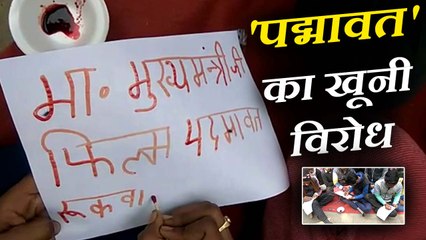 'पद्मावत'
का खूनी
विरोध
मा. मुख्यमंत्रीजी
फिल्म पदमावत
रूकवा